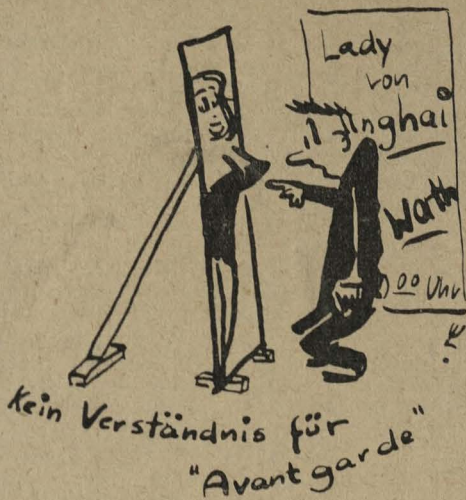 Lady
von
nghai
Warth
00 Uhr
Kein Verständnis für
"Avantgarde"